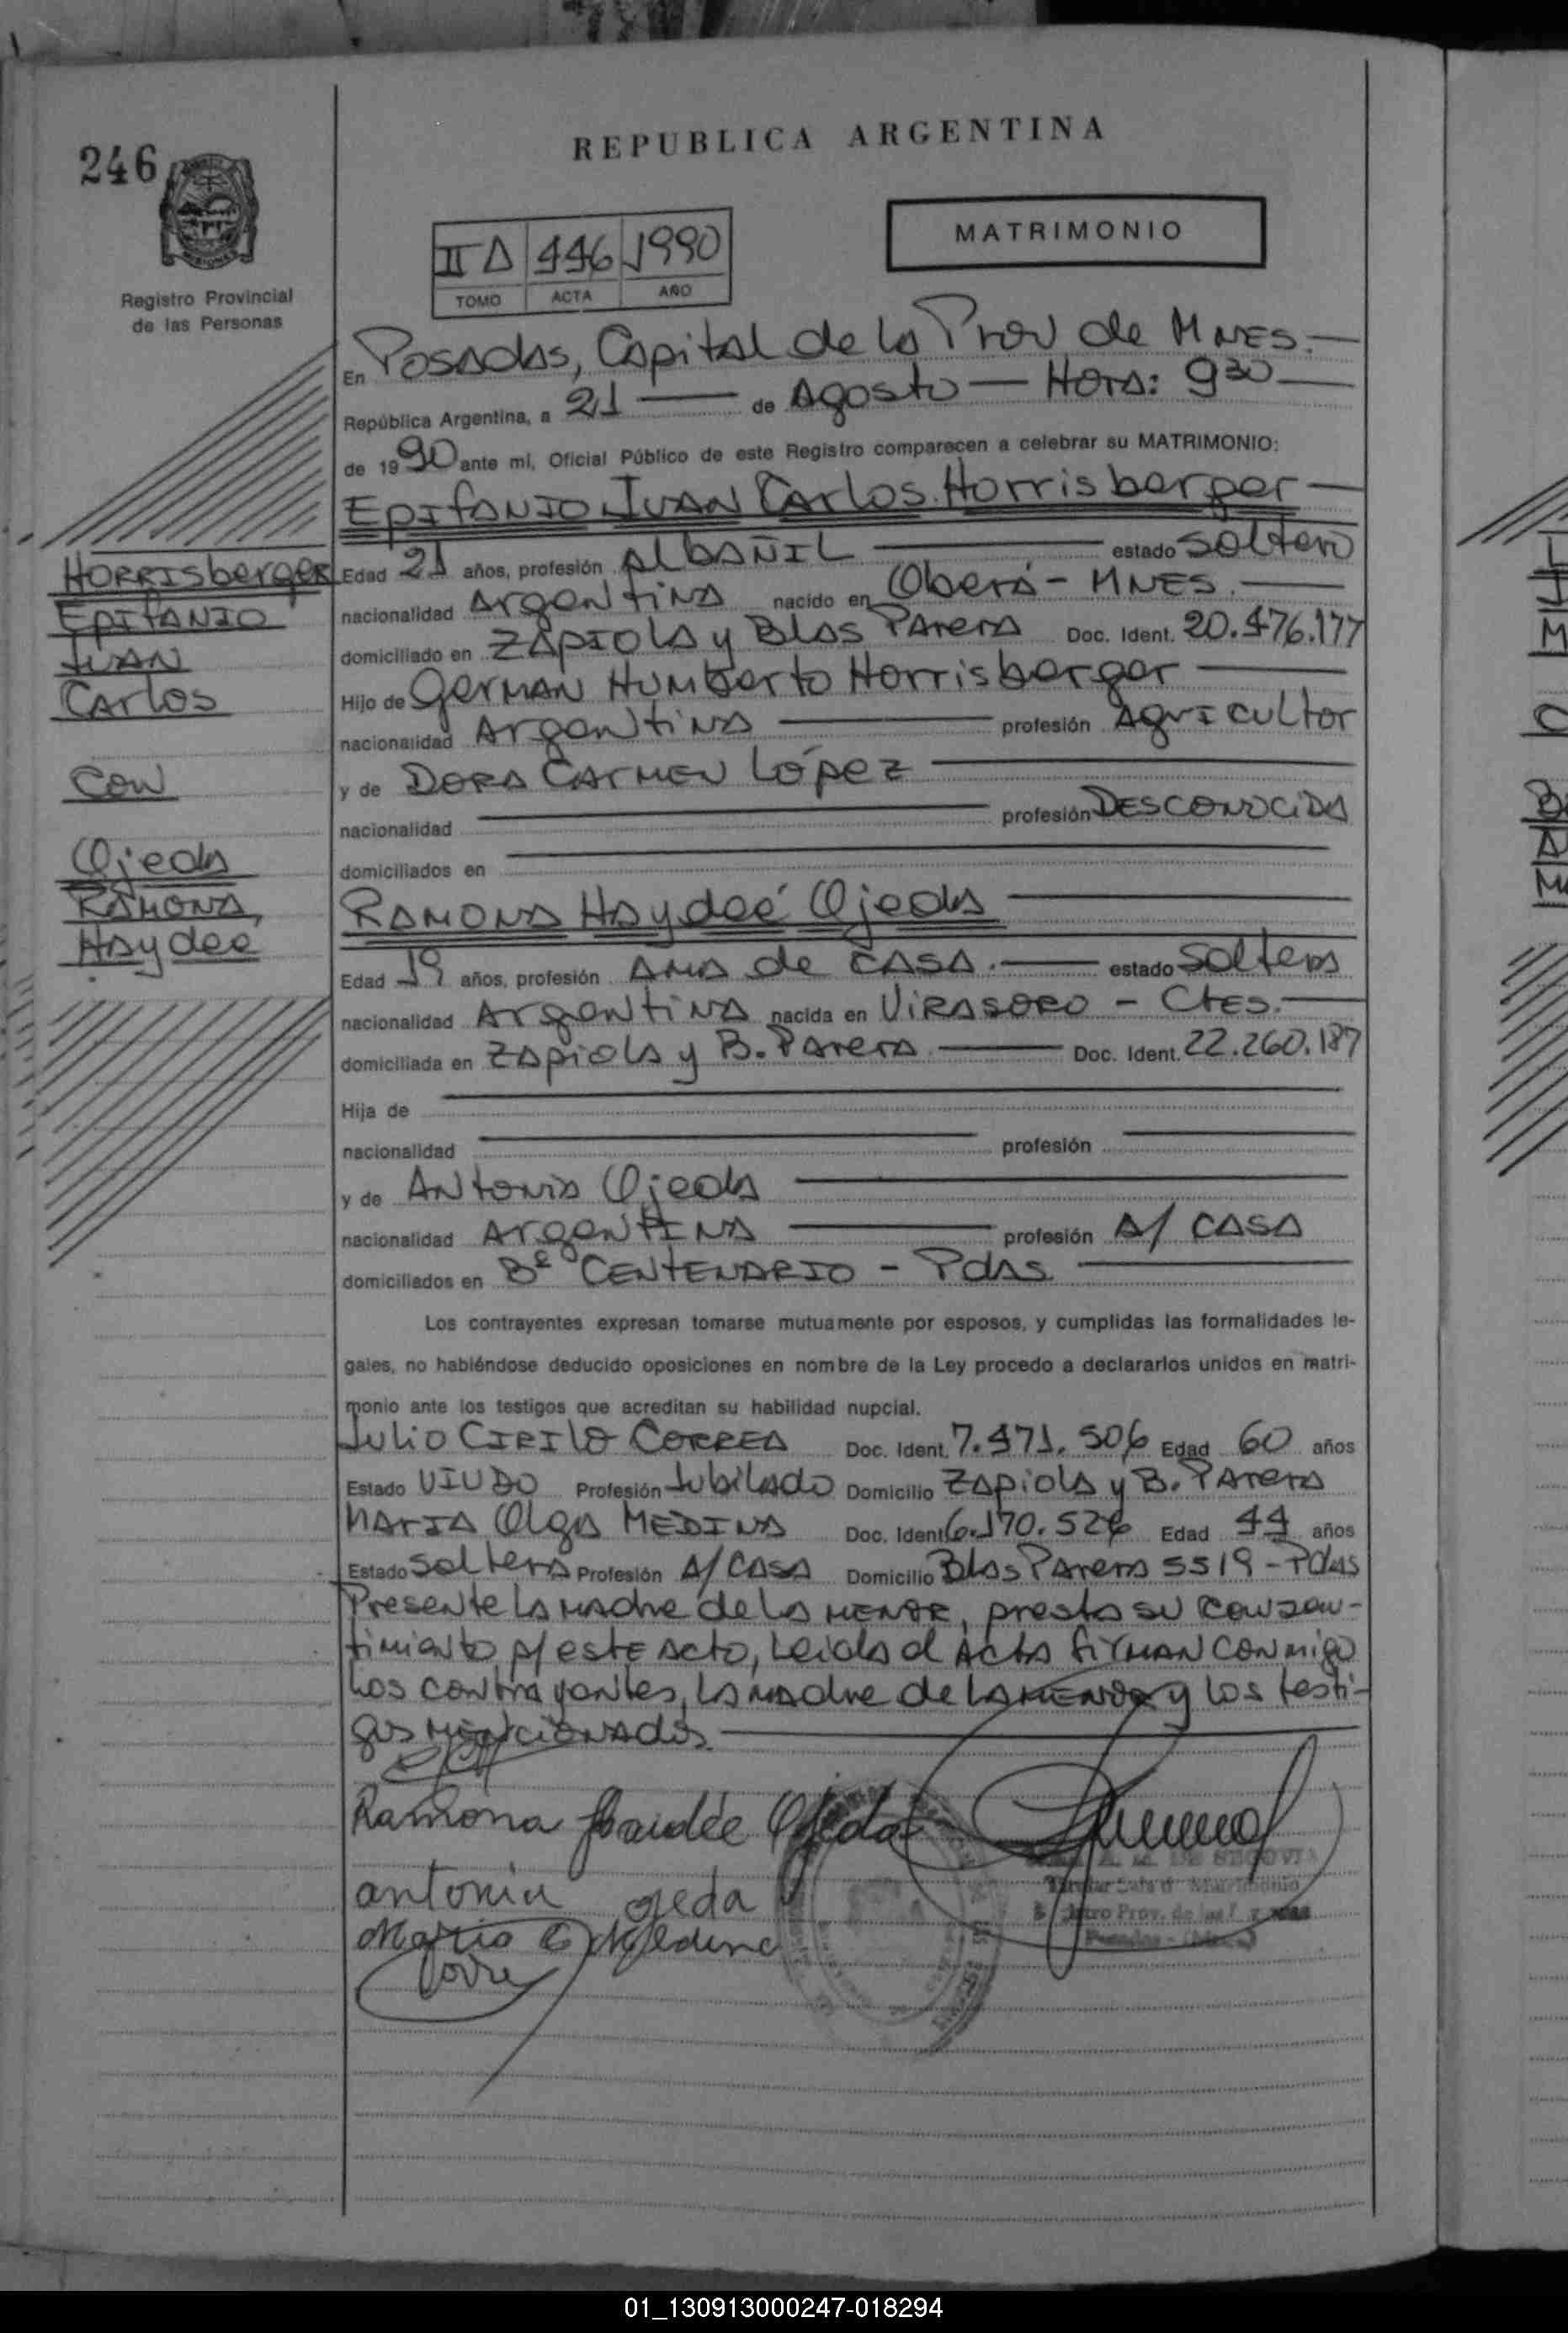 246
REPUBLICA ARGENTINA
Registro Provincial
de las Personas
II D 446 1990
TOMO ACTA AÑO
MATRIMONIO
En Posadas, Capital de la Prov de MNES.
República Argentina, a 21 de Agosto - Hora: 9 30
de 1990 ante mi, Oficial Público de este Registro comparecen a celebrar su MATRIMONIO:
Epifanio Juan Carlos Horrisberger
Horrisberger
Epifanio
Juan
Carlos
con
Ojeda
Ramona
Haydee
Edad 21 años, profesión Albañil estado soltero
nacionalidad Argentina nacido en Oberá - MNES.
domiciliado en Zapiola y Blas Parera Doc. Ident. 20.476.177
Hijo de German Humberto Horrisberger
nacionalidad Argentina profesión Agricultor
y de Dora Carmen López
nacionalidad profesión Desconocida
domiciliados en
Ramona Haydeé Ojeda
Edad 19 años, profesión Ama de casa. estado soltera
nacionalidad Argentina nacida en Virasoro - Ctes.
domiciliada en Zapiola y B. Parera Doc. Ident. 22.260.187
Hija de
nacionalidad profesión
y de Antonia Ojeda
nacionalidad Argentina profesión A/ casa
domiciliados en Bº Centenario - Pdas
Los contrayentes expresan tomarse mutuamente por esposos, y cumplidas las formalidades le-
gales, no habiéndose deducido oposiciones en nombre de la Ley procedo a declararlos unidos en matri-
monio ante los testigos que acreditan su habilidad nupcial.
Julio Cirilo Correa Doc. Ident. 7.471.506 Edad 60 años
Estado Viudo Profesión Jubilado Domicilio Zapiola y B. Parera
Maria Olga Medina Doc. Ident. 6.170.526 Edad 44 años
Estado Soltera Profesión A/ casa Domicilio Blas Parera 5519 - Pdas
Presente la madre de la menor, presta su consen-
timiento p/ este acto, leida el acta firman conmigo
los contrayentes, la madre de la menor y los testi-
gos mencionados.
Ramona Haidée Ojeda
antonia ojeda
Maria O Medina
DE SEGOVIA
01_130913000247-018294